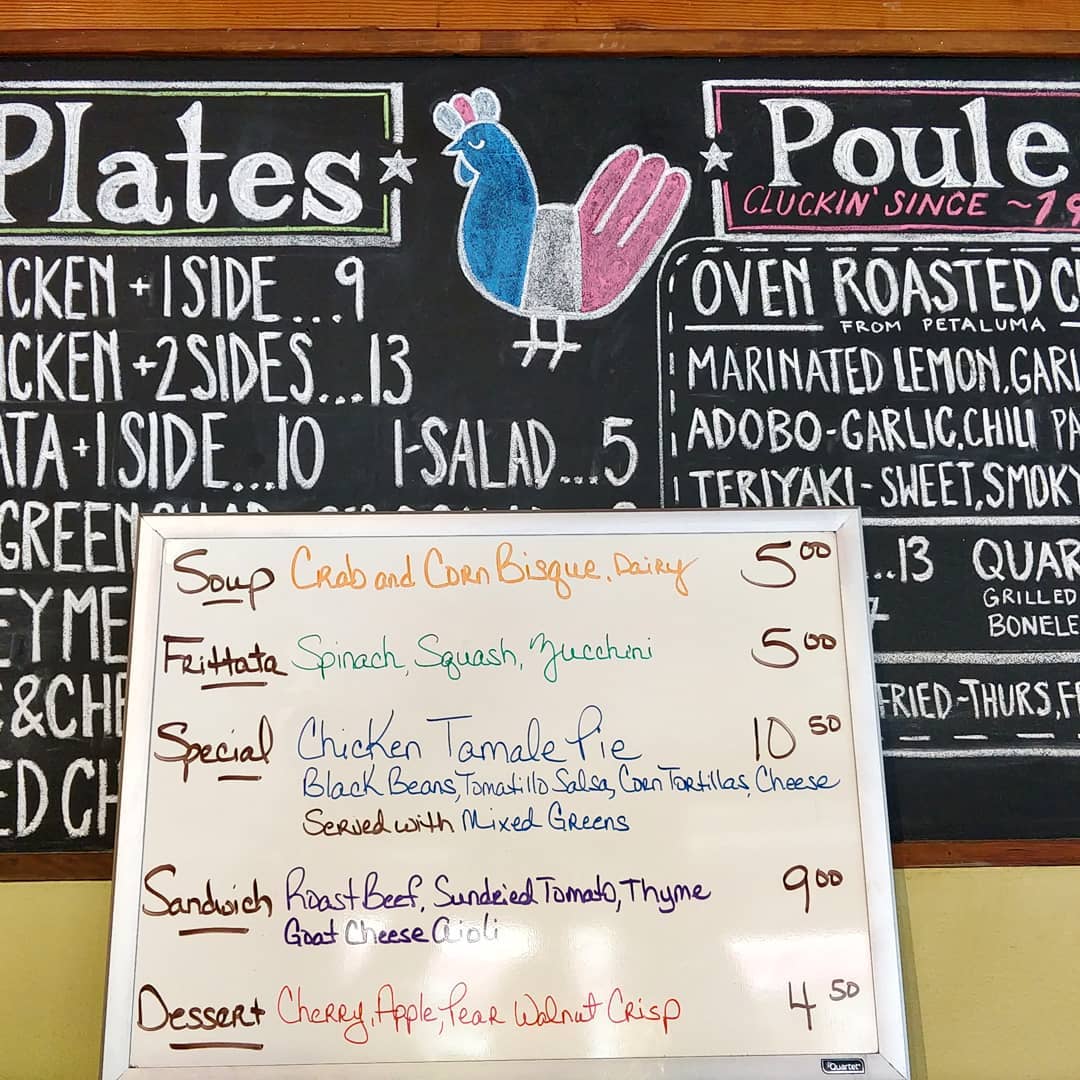 Plates
Poule
CLUCKIN' SINCE ~19
ICKEN + 1 SIDE...9
ICKEN + 2 SIDES...13
ATA + 1 SIDE...10 1-SALAD...5
GREEN
EY ME
& CHE
ED CH
OVEN ROASTED C
FROM PETALUMA
MARINATED LEMON, GARL
ADOBO - GARLIC, CHILI PA
TERIYAKI - SWEET, SMOKY
...13 QUAR
GRILLED
BONELE
FRIED - THURS, F
Soup Crab and Corn Bisque, Dairy 5.00
Frittata Spinach, Squash, Zucchini 5.00
Special Chicken Tamale Pie 10 50
Black Beans, Tomatillo Salsa, Corn Tortillas, Cheese
Served with Mixed Greens
Sandwich Roast Beef, Sundried Tomato, Thyme 9.00
Goat Cheese Aioli
Dessert Cherry, Apple, Pear Walnut Crisp 4 50
Quartet